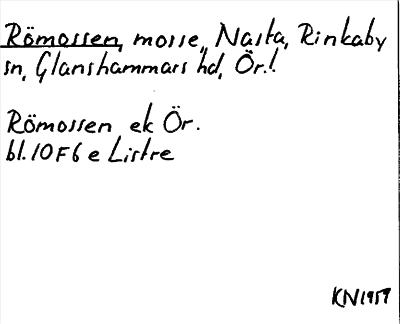 Römossen, mosse, Nasta, Rinkaby
sn, Glanshammars hd, Ör.!
Römossen ek Ör.
bl. 10 F 6 e Listre
KN 1959